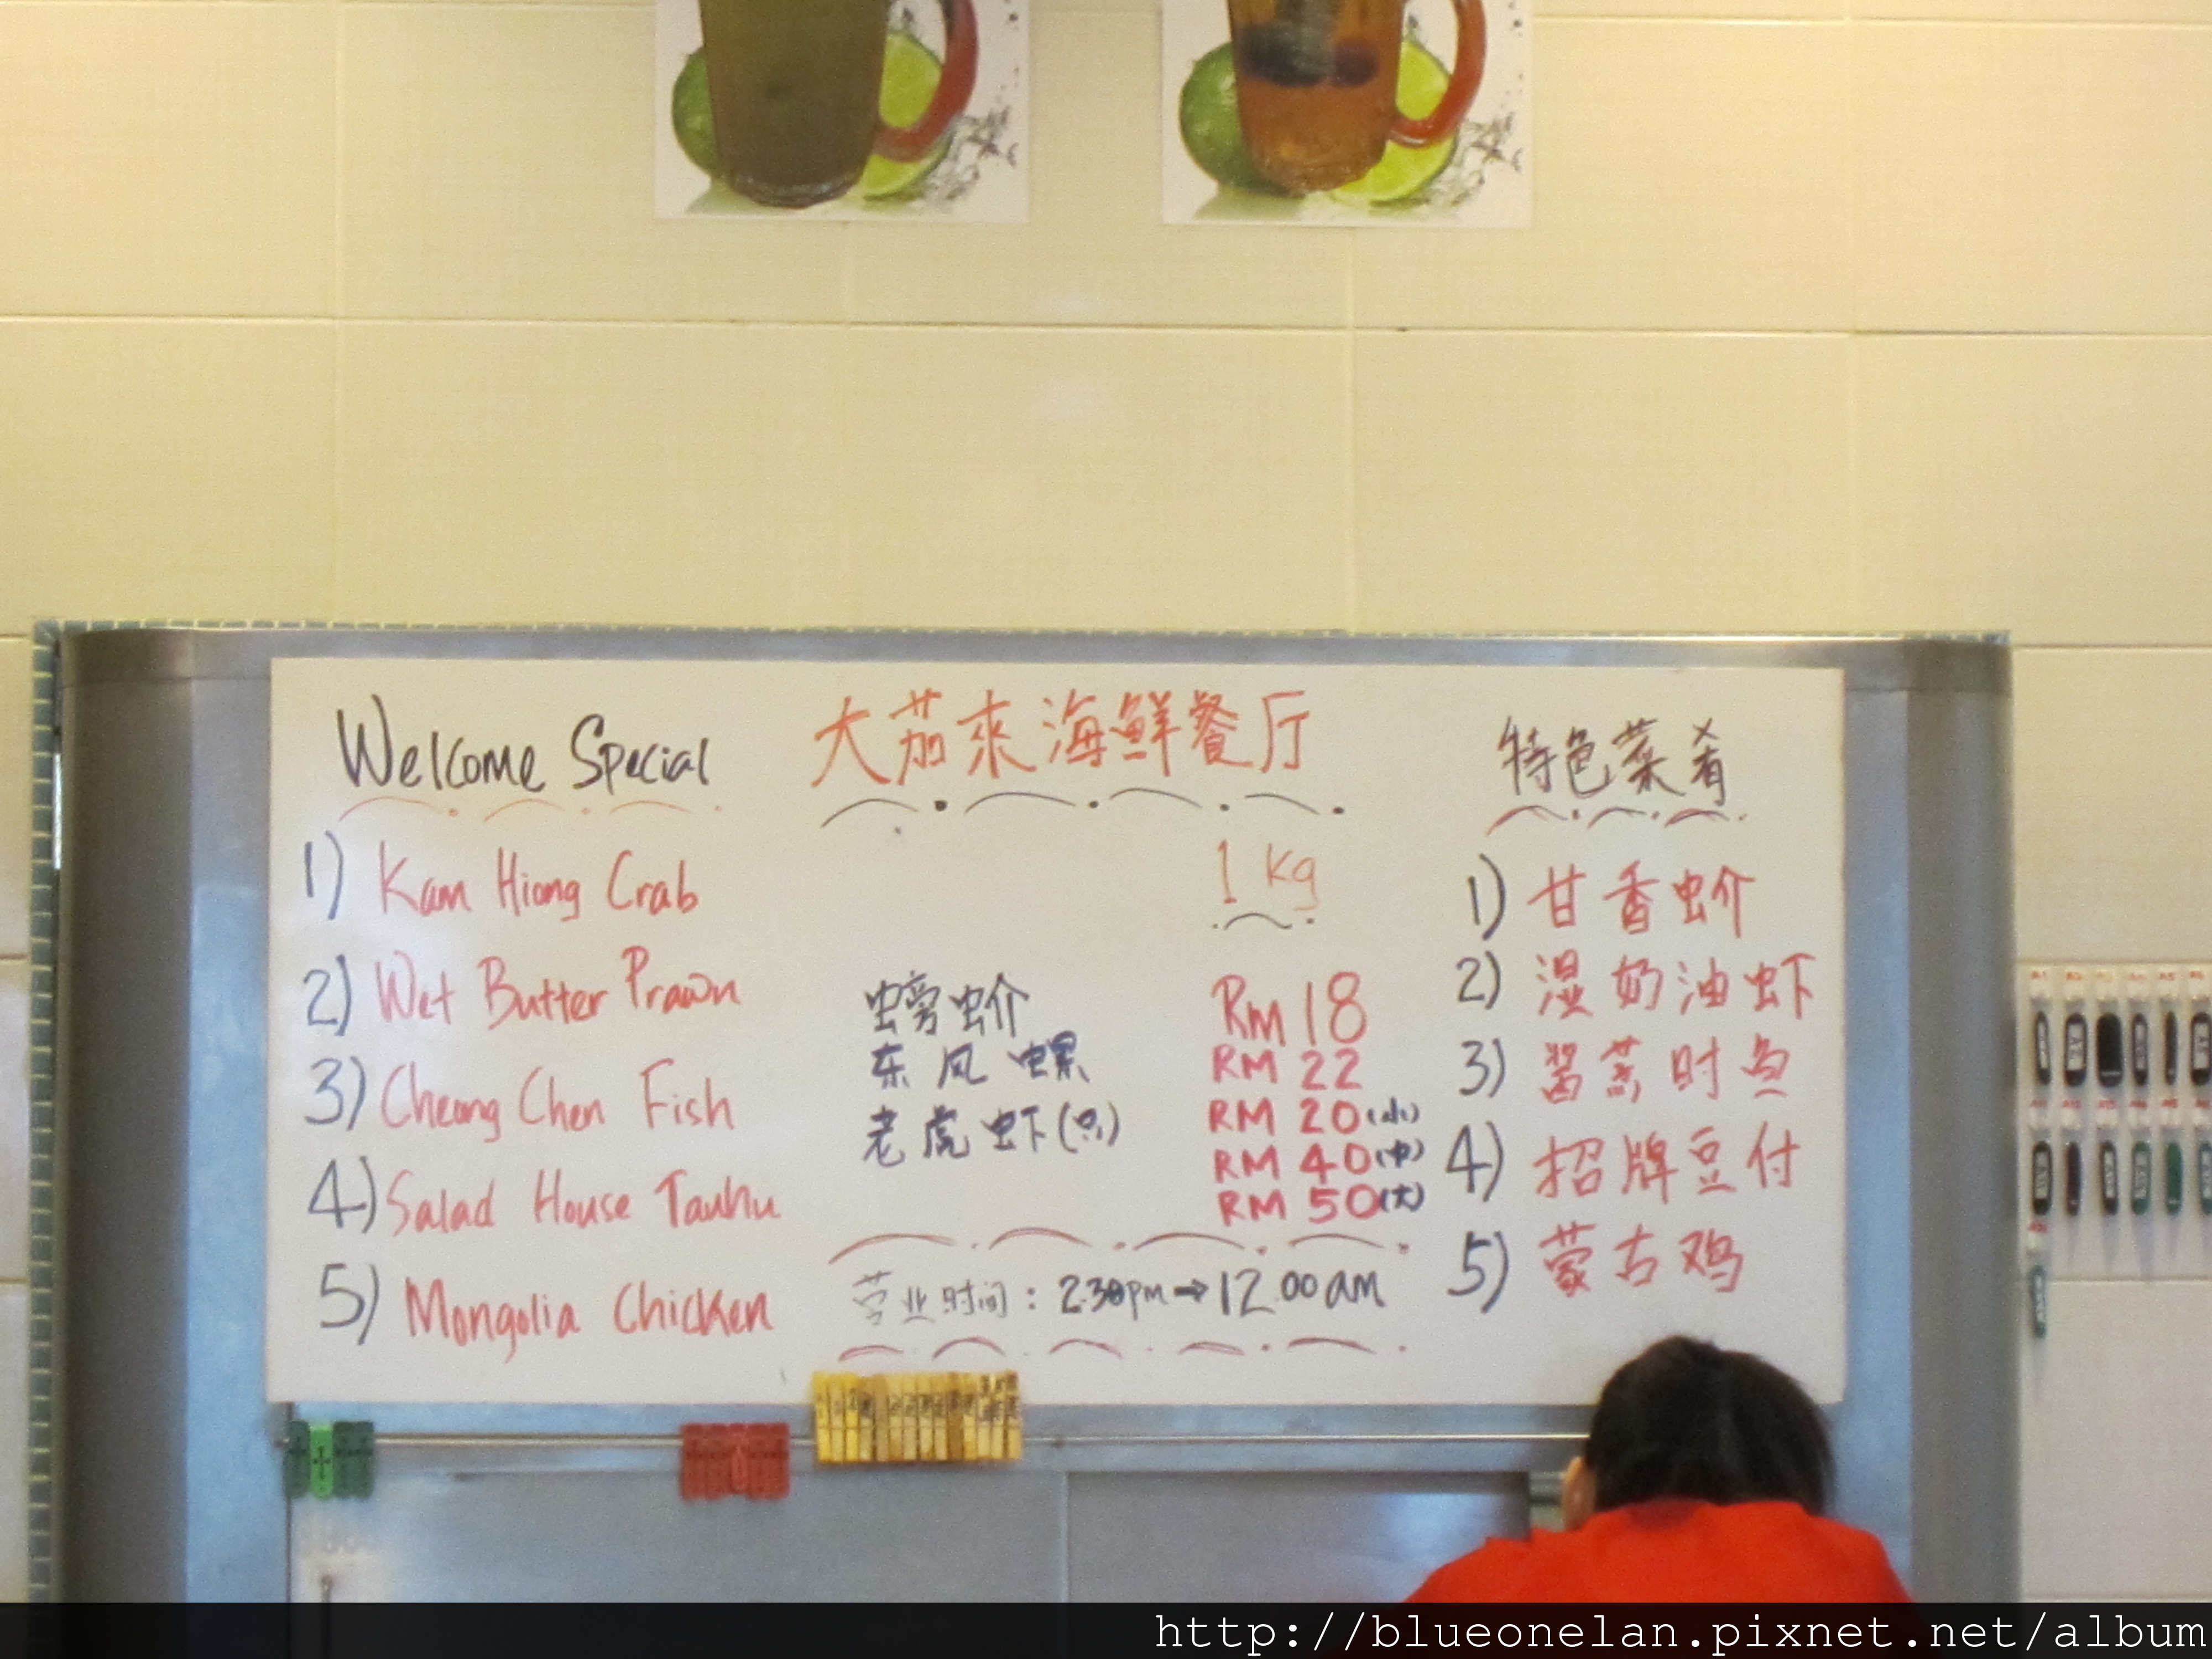 Welcome Special
1) Kam Hiong Crab
2) Wet Butter Prawn
3) Cheong Chen Fish
4) Salad House Tauhu
5) Mongolia Chicken
大茄來海鲜餐厅
1 Kg
螃蚧 Rm 18
东风螺 RM 22
老虎虾(只) RM 20(小)
RM 40(中)
RM 50(大)
营业时间: 2.30pm → 12.00am
特色菜肴
1) 甘香蚧
2) 湿奶油虾
3) 酱蒸时鱼
4) 招牌豆付
5) 蒙古鸡
http://blueonelan.pixnet.net/album